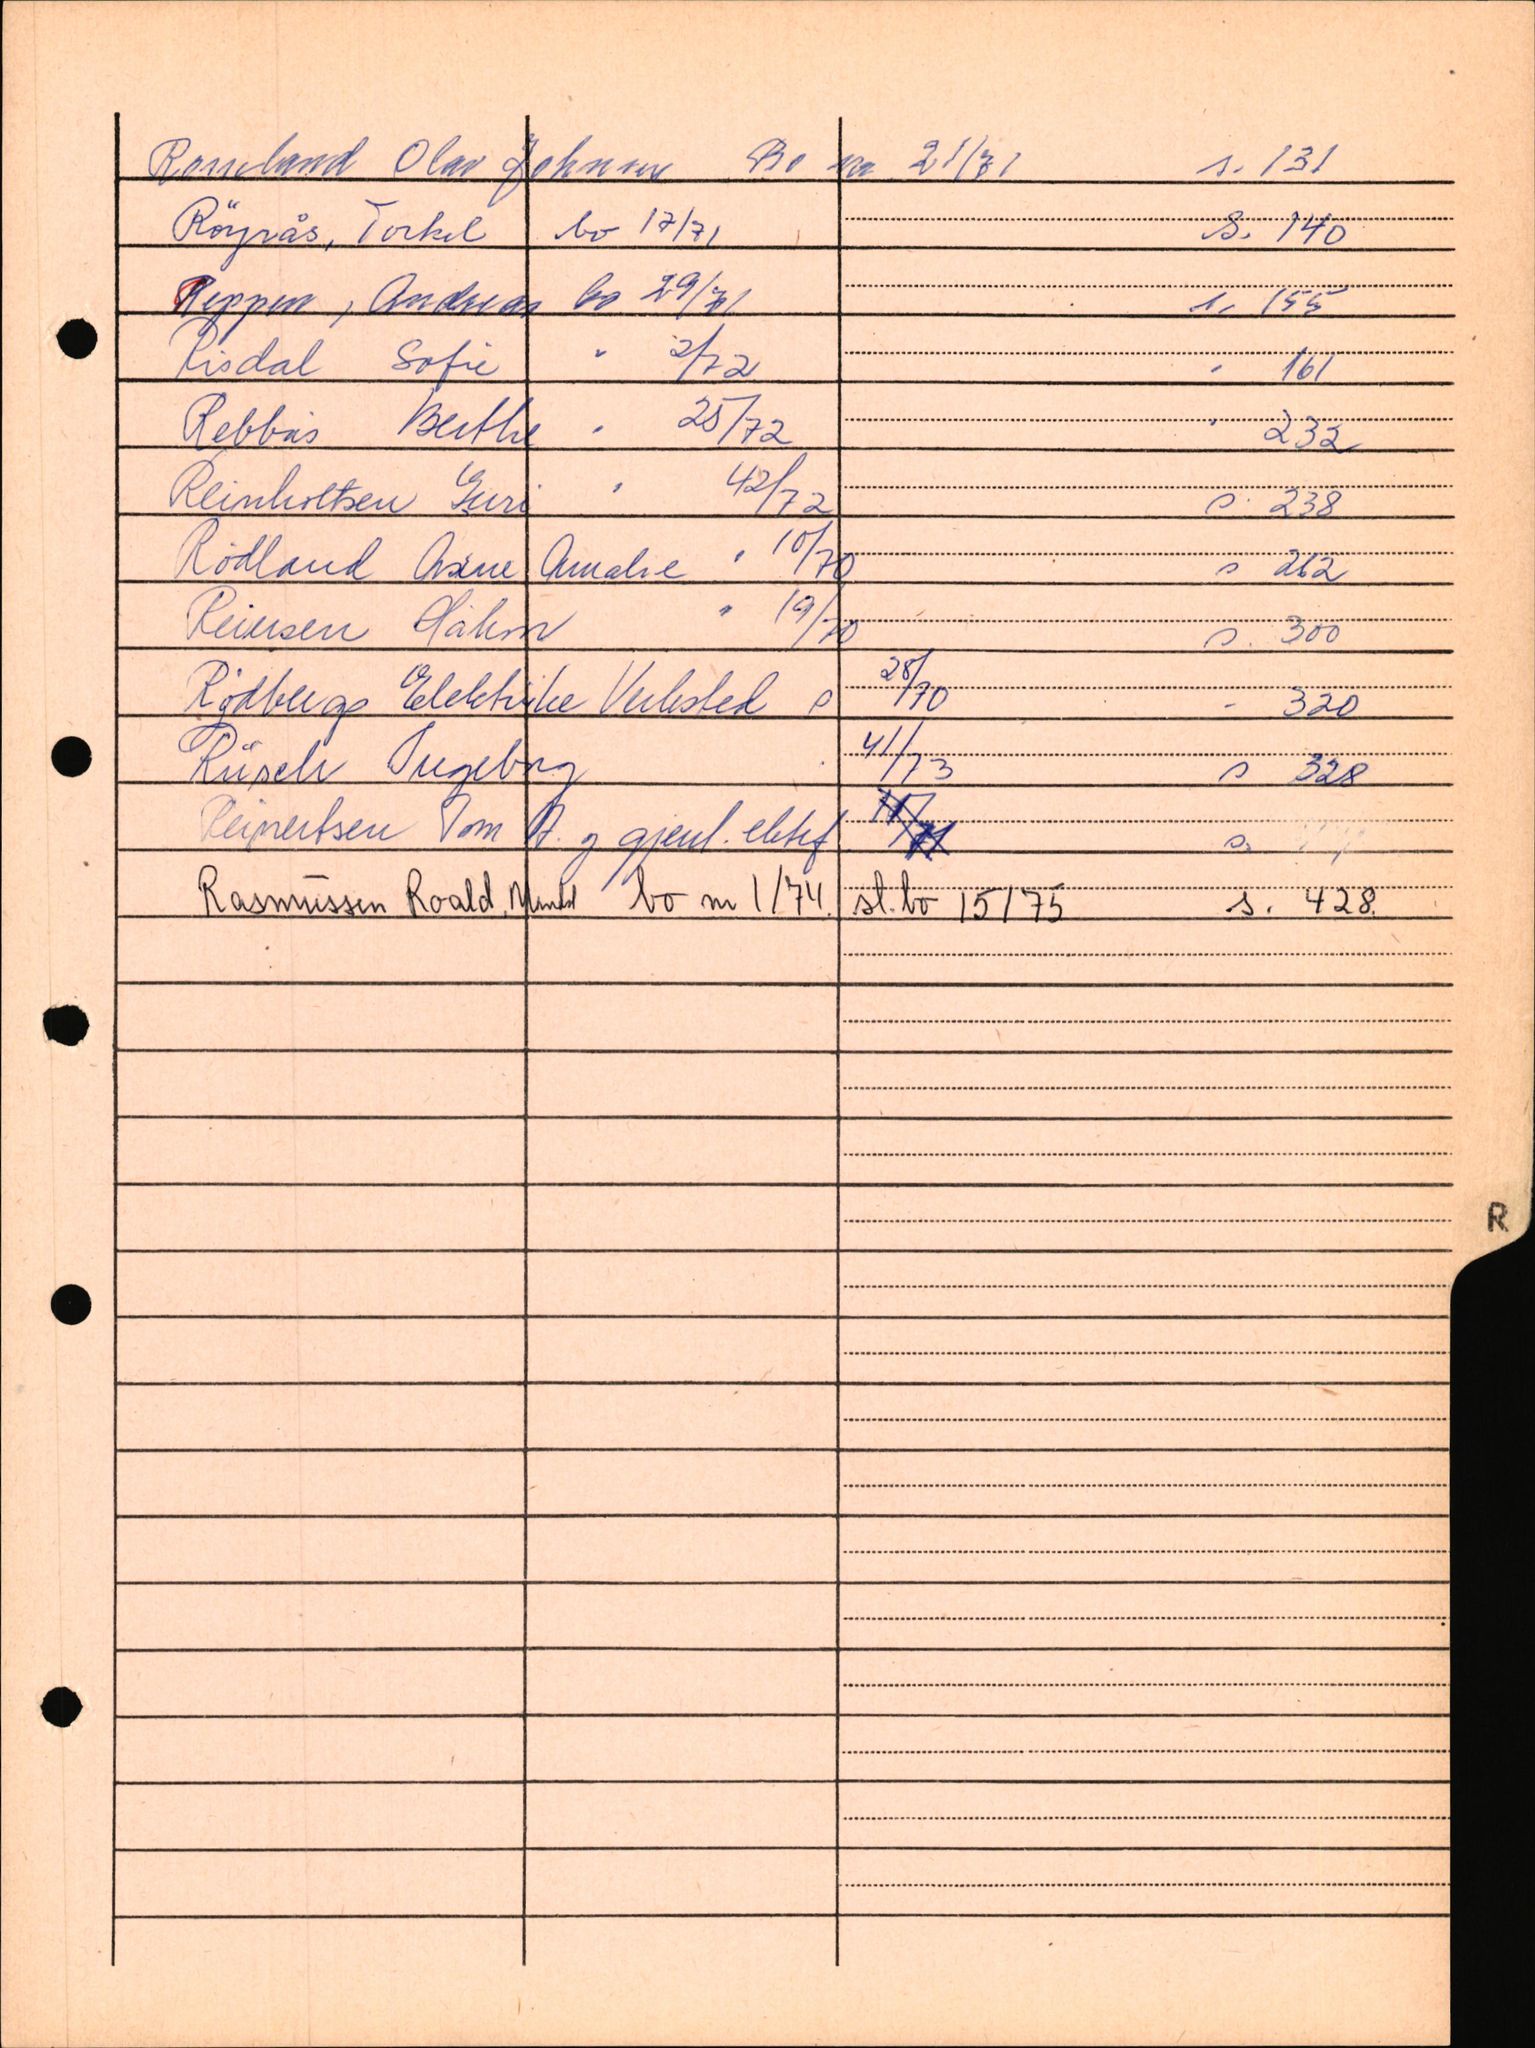 Rosseland Olav Johnner Bo nr 21/71 s. 131
Röyrås, Torkel bo 17/71 S. 140
Reppen, Andreas bo 29/71 s. 155
Risdal Sofie " 2/72 " 161
Rebbås Berthe " 25/72 " 232
Reinholtsen Guri " 42/72 s. 238
Rödland Amalie " 10/70 s 262
Reiersen Håkon " 19/70 s. 300
Rödbergs Elektriske Verksted s 28/70 - 320
Rüsch Ingeborg 41/73 s 328
Reinertsen Tom A. og gjenl. ektef. s.
Rasmussen Roald, bo nr 1/74. sl. bo 15/75 s. 428.
R